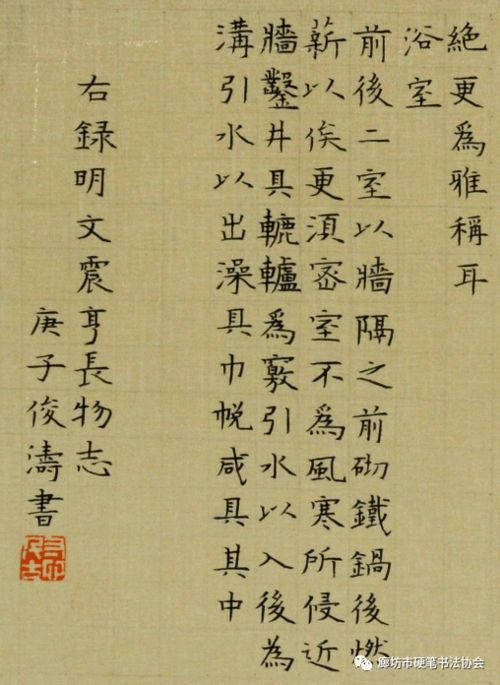 絶更為雅稱耳
浴室
前後二室以牆隔之前砌鐵鍋後燃
薪以俟更湏密室不為風寒所侵近
牆鑿井具轆轤為竅引水以入後為
溝引水以出澡具巾帨咸具其中
右録明文震亨長物志
庚子俊濤書
廊坊市硬笔书法协会